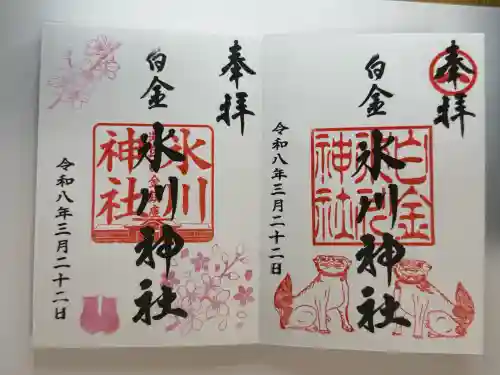 奉拝
白金
氷川神社
氷川神社
令和八年三月二十二日
奉拝
白金
氷川神社
白金氷川神社
令和八年三月二十二日